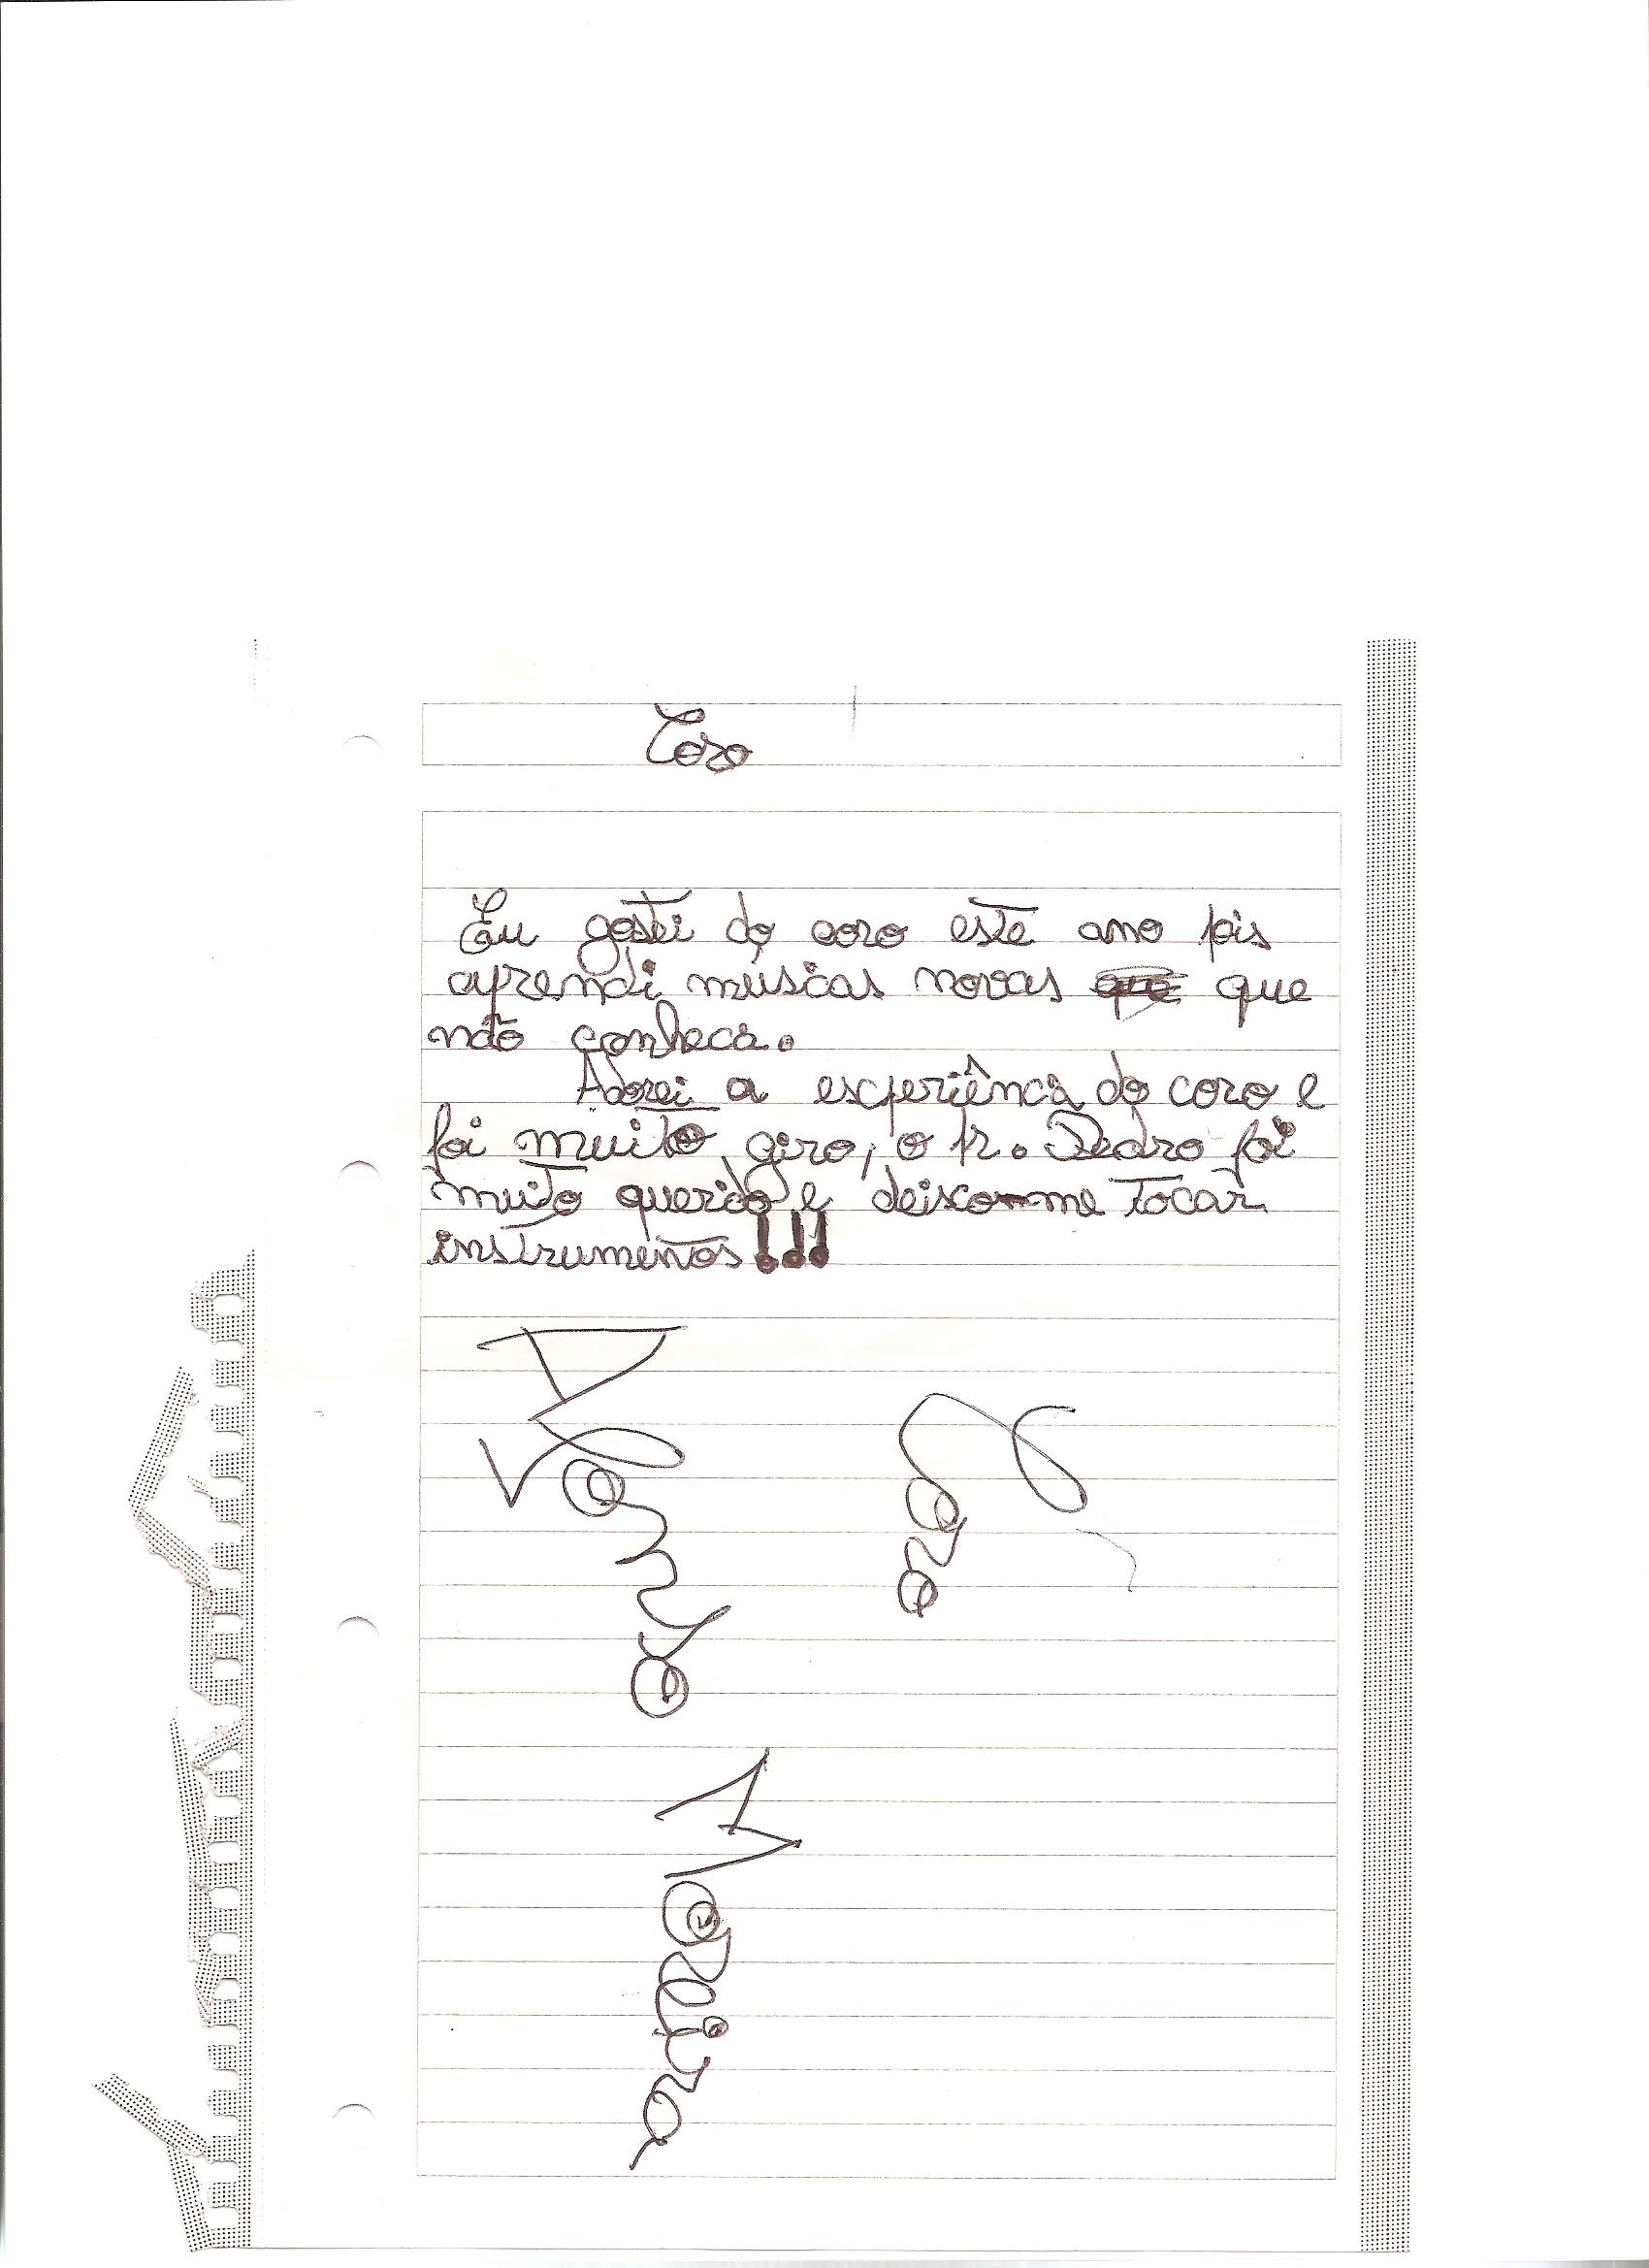 Coro
Eu gostei do coro este ano pois
aprendi músicas novas que que
não conhecia.
Adorei a experiência do coro e
foi muito giro, o pr. Pedro foi
muito querido e deixo-me tocar
instrumentos!!!
Coro
Afonso Moreira